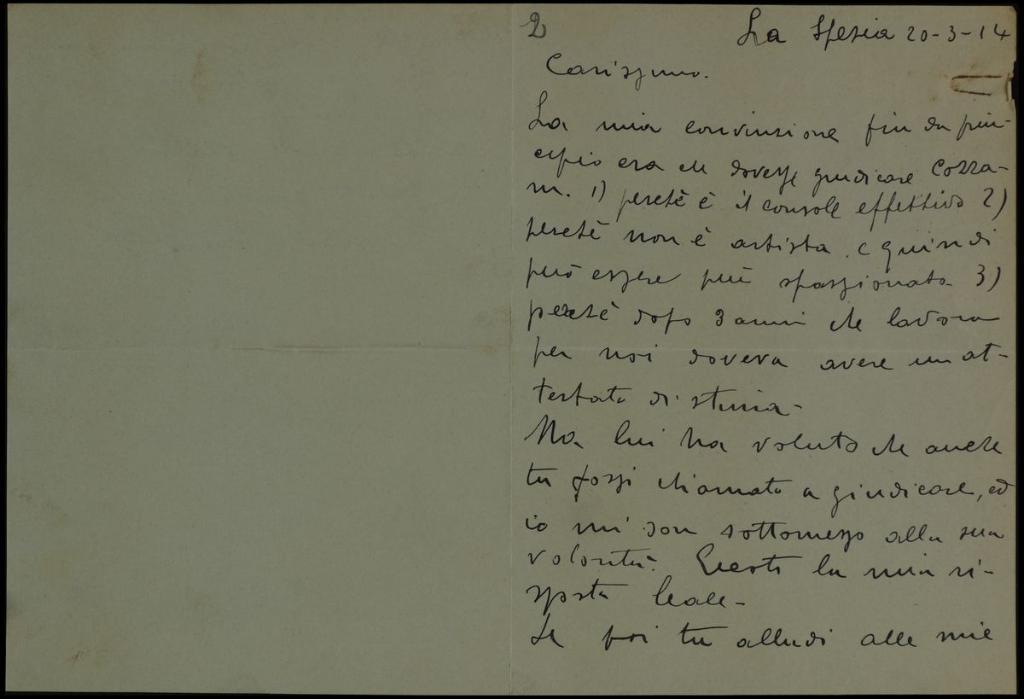 2
La Spezia 20-3-14
Carissimo.
La mia convinzione fin da prin-
cipio era che dovesse giudicare Cozza-
ni. 1) perchè è il console effettivo 2)
perchè non è artista e quindi
può essere più spassionato 3)
perchè dopo 3 anni che lavora
per noi doveva avere un at-
testato di stima -
Ma lui ha voluto che anche
tu fossi chiamato a giudicare, ed
io mi son sottomesso alla sua
volontà. Questa la mia ri-
sposta leale -
Se poi tu alludi alle mie